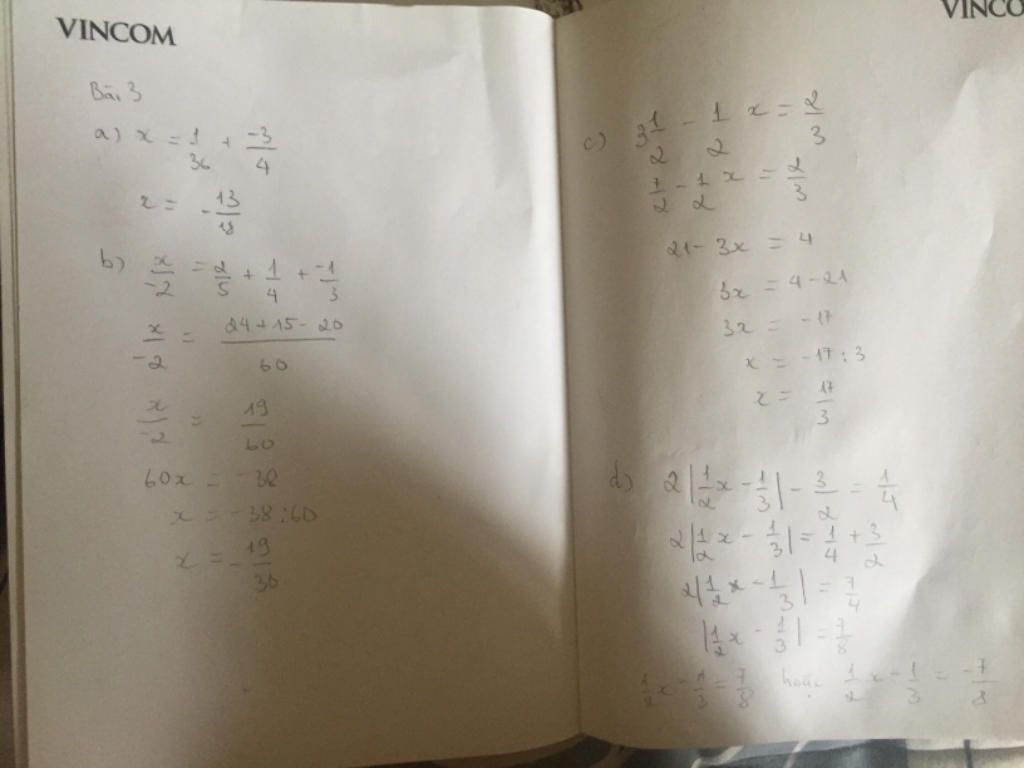 VINCOM
Bài 3
a) x = 1/36 + -3/4
x = -13/18
b) x/-2 = 2/5 + 1/4 + -1/3
x/-2 = 24+15-20/60
x/-2 = 19/60
60x = -38
x = -38:60
x = -19/30
VINCO
c) 3 1/2 - 1/2 x = 2/3
7/2 - 1/2 x = 2/3
21 - 3x = 4
3x = 4 - 21
3x = -17
x = -17:3
x = 17/3
d) 2|1/2 x - 1/3| - 3/2 = 1/4
2|1/2 x - 1/3| = 1/4 + 3/2
2|1/2 x - 1/3| = 7/4
|1/2 x - 1/3| = 7/8
1/2 x - 1/3 = 7/8 hoặc 1/2 x - 1/3 = -7/8